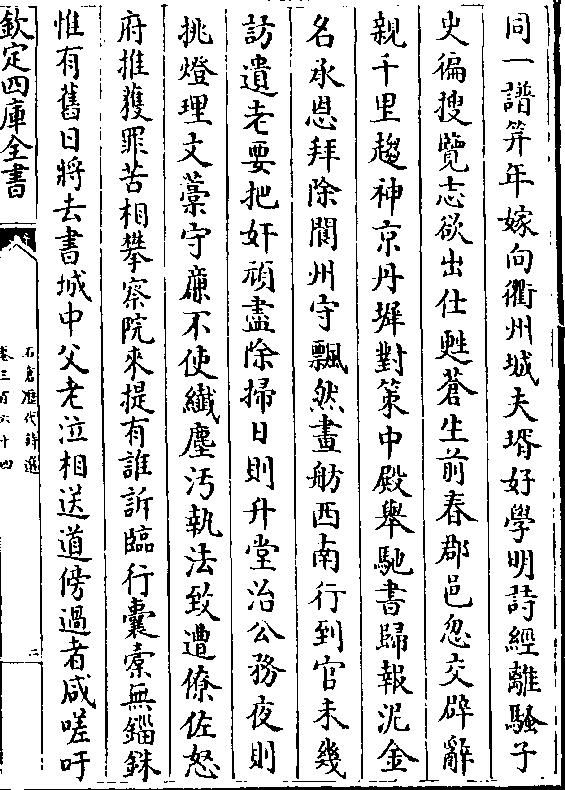 同一譜笄年嫁向衢州城夫壻好學明詩經離騷子
史徧搜覽志欲出仕甦蒼生前春郡邑忽交辟辭
親千里趨神京丹墀對策中殿舉馳書歸報泥金
名承恩拜除閬州守飄然畫舫西南行到官未幾
訪遺老要把奸頑盡除掃日則升堂治公務夜則
挑燈理文藁守亷不使纎塵汚執法致遭僚佐怒
府推獲罪苦相攀察院來提有誰訴臨行囊橐無錙銖
惟有舊日將去書城中父老泣相送道傍過者咸嗟吁
欽定四庫全書
石倉歷代詩選
卷三百六十四
二